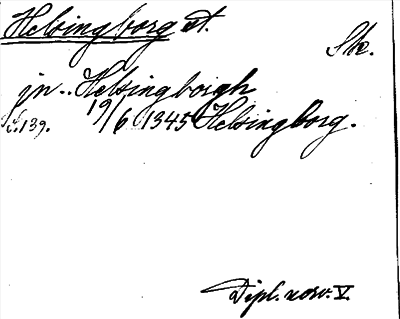 Helsingborg st.
Sk.
jn.. Helsingborgh
s. 139. 19/6 1345 Helsingborg.
Dipl. norv. V.